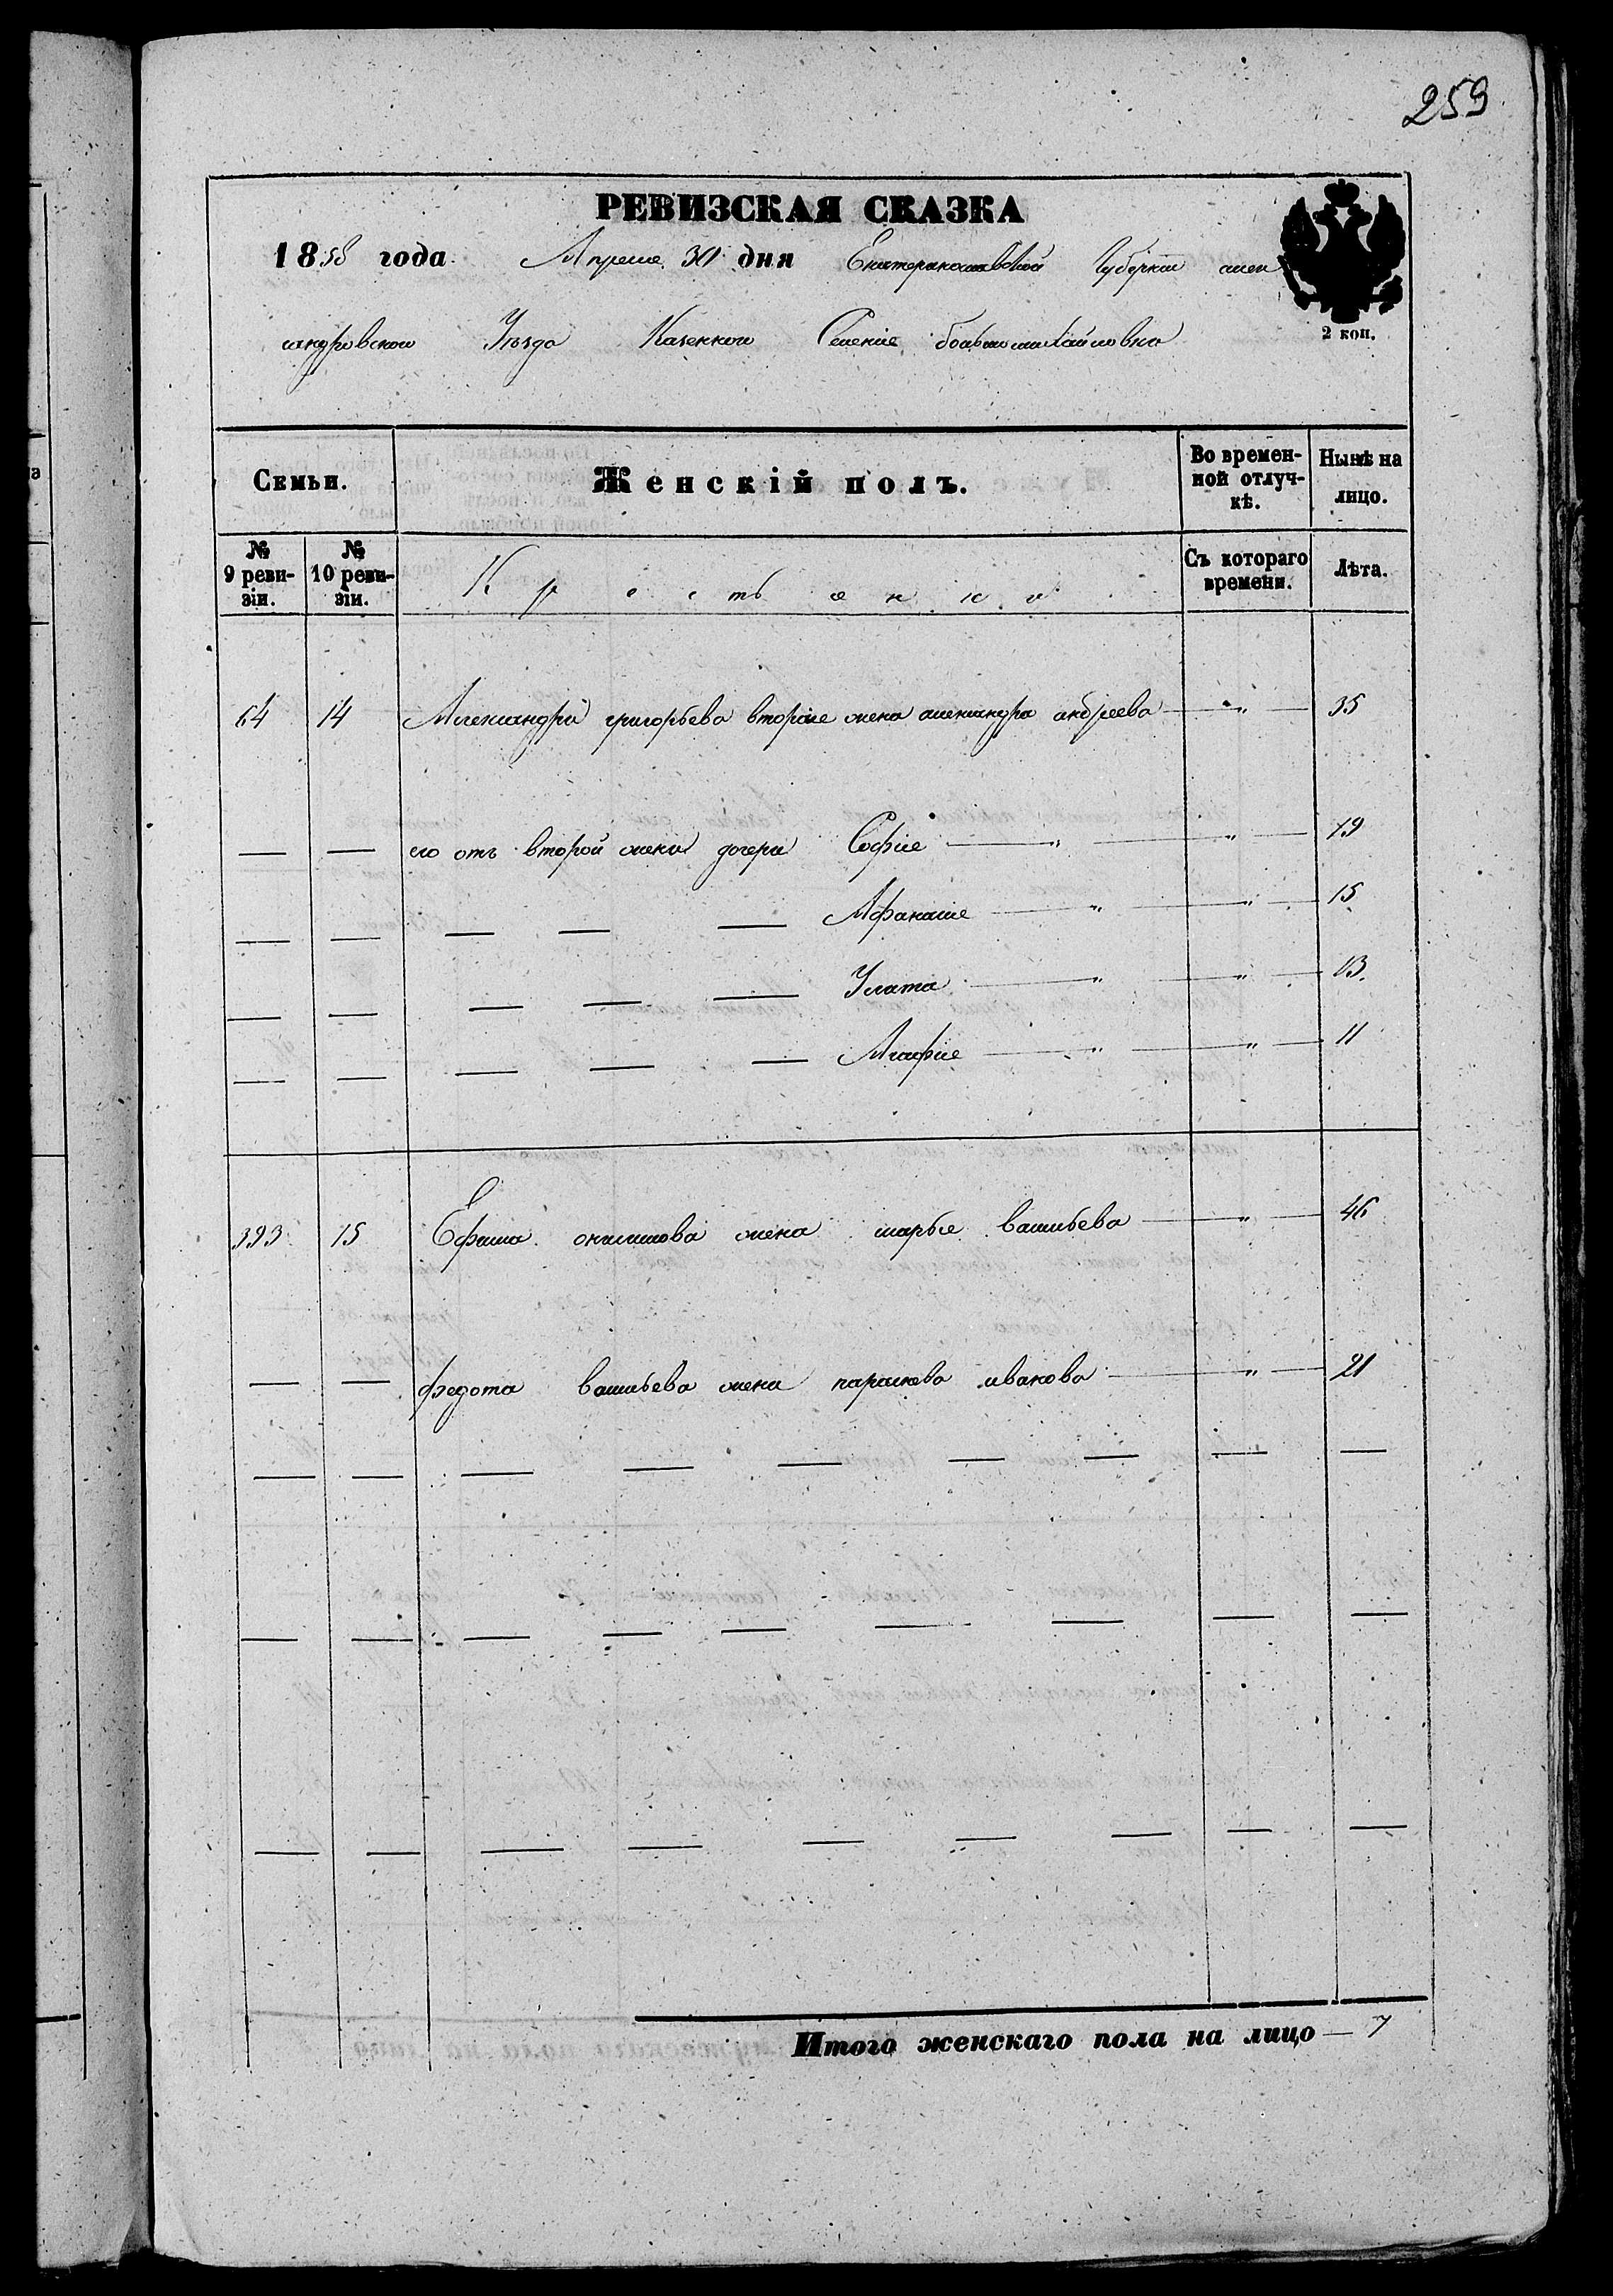 259
РЕВИЗСКАЯ СКАЗКА
1858 года Апреля 30 дня Екатеринославской Губернии алек
сандровского Уезда Казенного Селения большемихайловка
2 коп.
Семьи. Женскій полъ. Во временной отлучкѣ. Нынѣ на лицо.
№ 9 ревизіи. № 10 ревизіи. Крестьянки Съ котораго времени. Лѣта.
64 14 Александра григорьева вторая жена александра андреева — " — 35
— — его отъ второй жены дочери Софие — " — " — 19
— — — — — Афанасие — " — " — 15
— — — — — Улита — " — " — 13
— — — — — Агафие — " — " — 11
393 15 Ефима онисимова жена марье васильева — " — 46
— — федота васильева жена параскева иванова — " — 21
— — — — — — — — —
— — — — — — — — —
— — — — — — — — —
Итого женскаго пола на лицо — 7